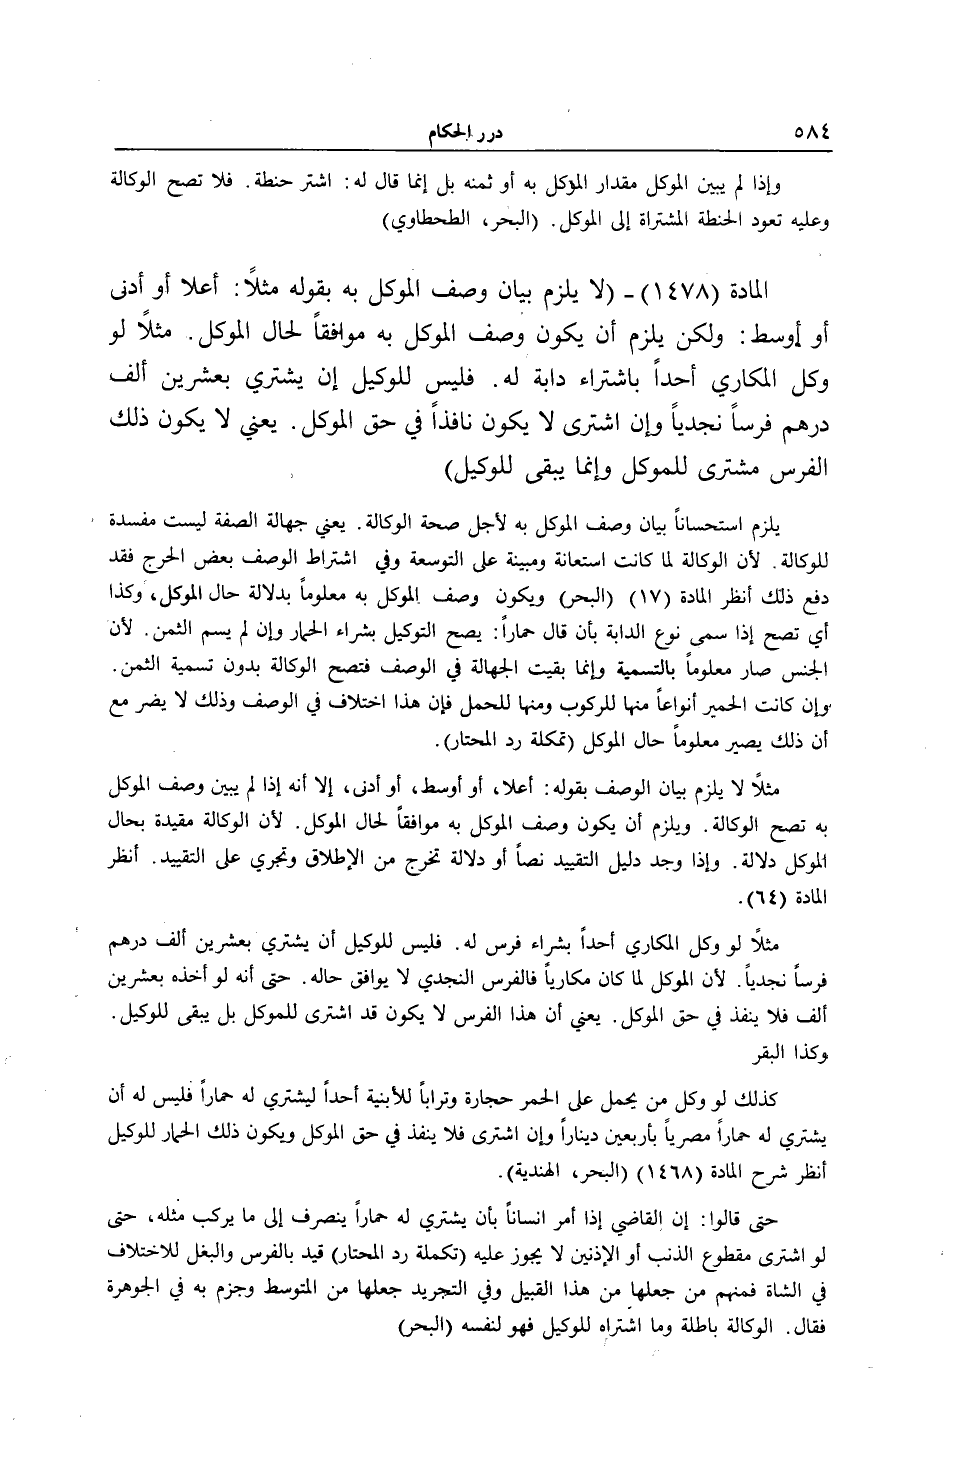 ٥٨٤
درر الحكام
وإذا لم يبين الموكل مقدار المؤكل به أو ثمنه بل إنما قال له: اشتر حنطة. فلا تصح الوكالة
وعليه تعود الحنطة المشتراة إلى الموكل. (البحر، الطحطاوي)
المادة (١٤٧٨) - (لا يلزم بيان وصف الموكل به بقوله مثلاً: أعلا أو أدنى
أو أوسط: ولكن يلزم أن يكون وصف الموكل به موافقاً لحال الموكل. مثلاً لو
وكل المكاري أحداً باشتراء دابة له. فليس للوكيل إن يشتري بعشرين ألف
درهم فرساً نجدياً وإن اشترى لا يكون نافذاً في حق الموكل. يعني لا يكون ذلك
الفرس مشترى للموكل وإنما يبقى للوكيل)
يلزم استحساناً بيان وصف الموكل به لأجل صحة الوكالة. يعني جهالة الصفة ليست مفسدة
للوكالة. لأن الوكالة لما كانت استعانة ومبينة على التوسعة وفي اشتراط الوصف بعض الحرج فقد
دفع ذلك أنظر المادة (١٧) (البحر) ويكون وصف الموكل به معلوماً بدلالة حال الموكل، وكذا
أي تصح إذا سمى نوع الدابة بأن قال حماراً: يصح التوكيل بشراء الحمار وإن لم يسم الثمن. لأن
الجنس صار معلوماً بالتسمية وإنما بقيت الجهالة في الوصف فتصح الوكالة بدون تسمية الثمن.
وإن كانت الحمير أنواعاً منها للركوب ومنها للحمل فإن هذا اختلاف في الوصف وذلك لا يضر مع
أن ذلك يصير معلوماً حال الموكل (تمكلة رد المحتار).
مثلاً لا يلزم بيان الوصف بقوله: أعلا، أو أوسط، أو أدنى، إلا أنه إذا لم يبين وصف الموكل
به تصح الوكالة. ويلزم أن يكون وصف الموكل به موافقاً لحال الموكل. لأن الوكالة مقيدة بحال
الموكل دلالة. وإذا وجد دليل التقييد نصاً أو دلالة تخرج من الإطلاق وتجري على التقييد. أنظر
المادة (٦٤).
مثلاً لو وكل المكاري أحداً بشراء فرس له. فليس للوكيل أن يشتري بعشرين ألف درهم
فرساً نجدياً. لأن الموكل لما كان مكارياً فالفرس النجدي لا يوافق حاله. حتى أنه لو أخذه بعشرين
ألف فلا ينفذ في حق الموكل. يعني أن هذا الفرس لا يكون قد اشترى للموكل بل يبقى للوكيل.
وكذا البقر
كذلك لو وكل من يحمل على الحمر حجارة وتراباً للأبنية أحداً ليشتري له حماراً فليس له أن
يشتري له حماراً مصرياً بأربعين ديناراً وإن اشترى فلا ينفذ في حق الموكل ويكون ذلك الحمار للوكيل
أنظر شرح المادة (١٤٦٨) (البحر، الهندية).
حتى قالوا: إن القاضي إذا أمر انساناً بأن يشتري له حماراً ينصرف إلى ما يركب مثله، حتى
لو اشترى مقطوع الذنب أو الإذنين لا يجوز عليه (تكملة رد المحتار) قيد بالفرس والبغل للاختلاف
في الشاة فمنهم من جعلها من هذا القبيل وفي التجريد جعلها من المتوسط وجزم به في الجوهرة
فقال. الوكالة باطلة وما اشتراه للوكيل فهو لنفسه (البحر)